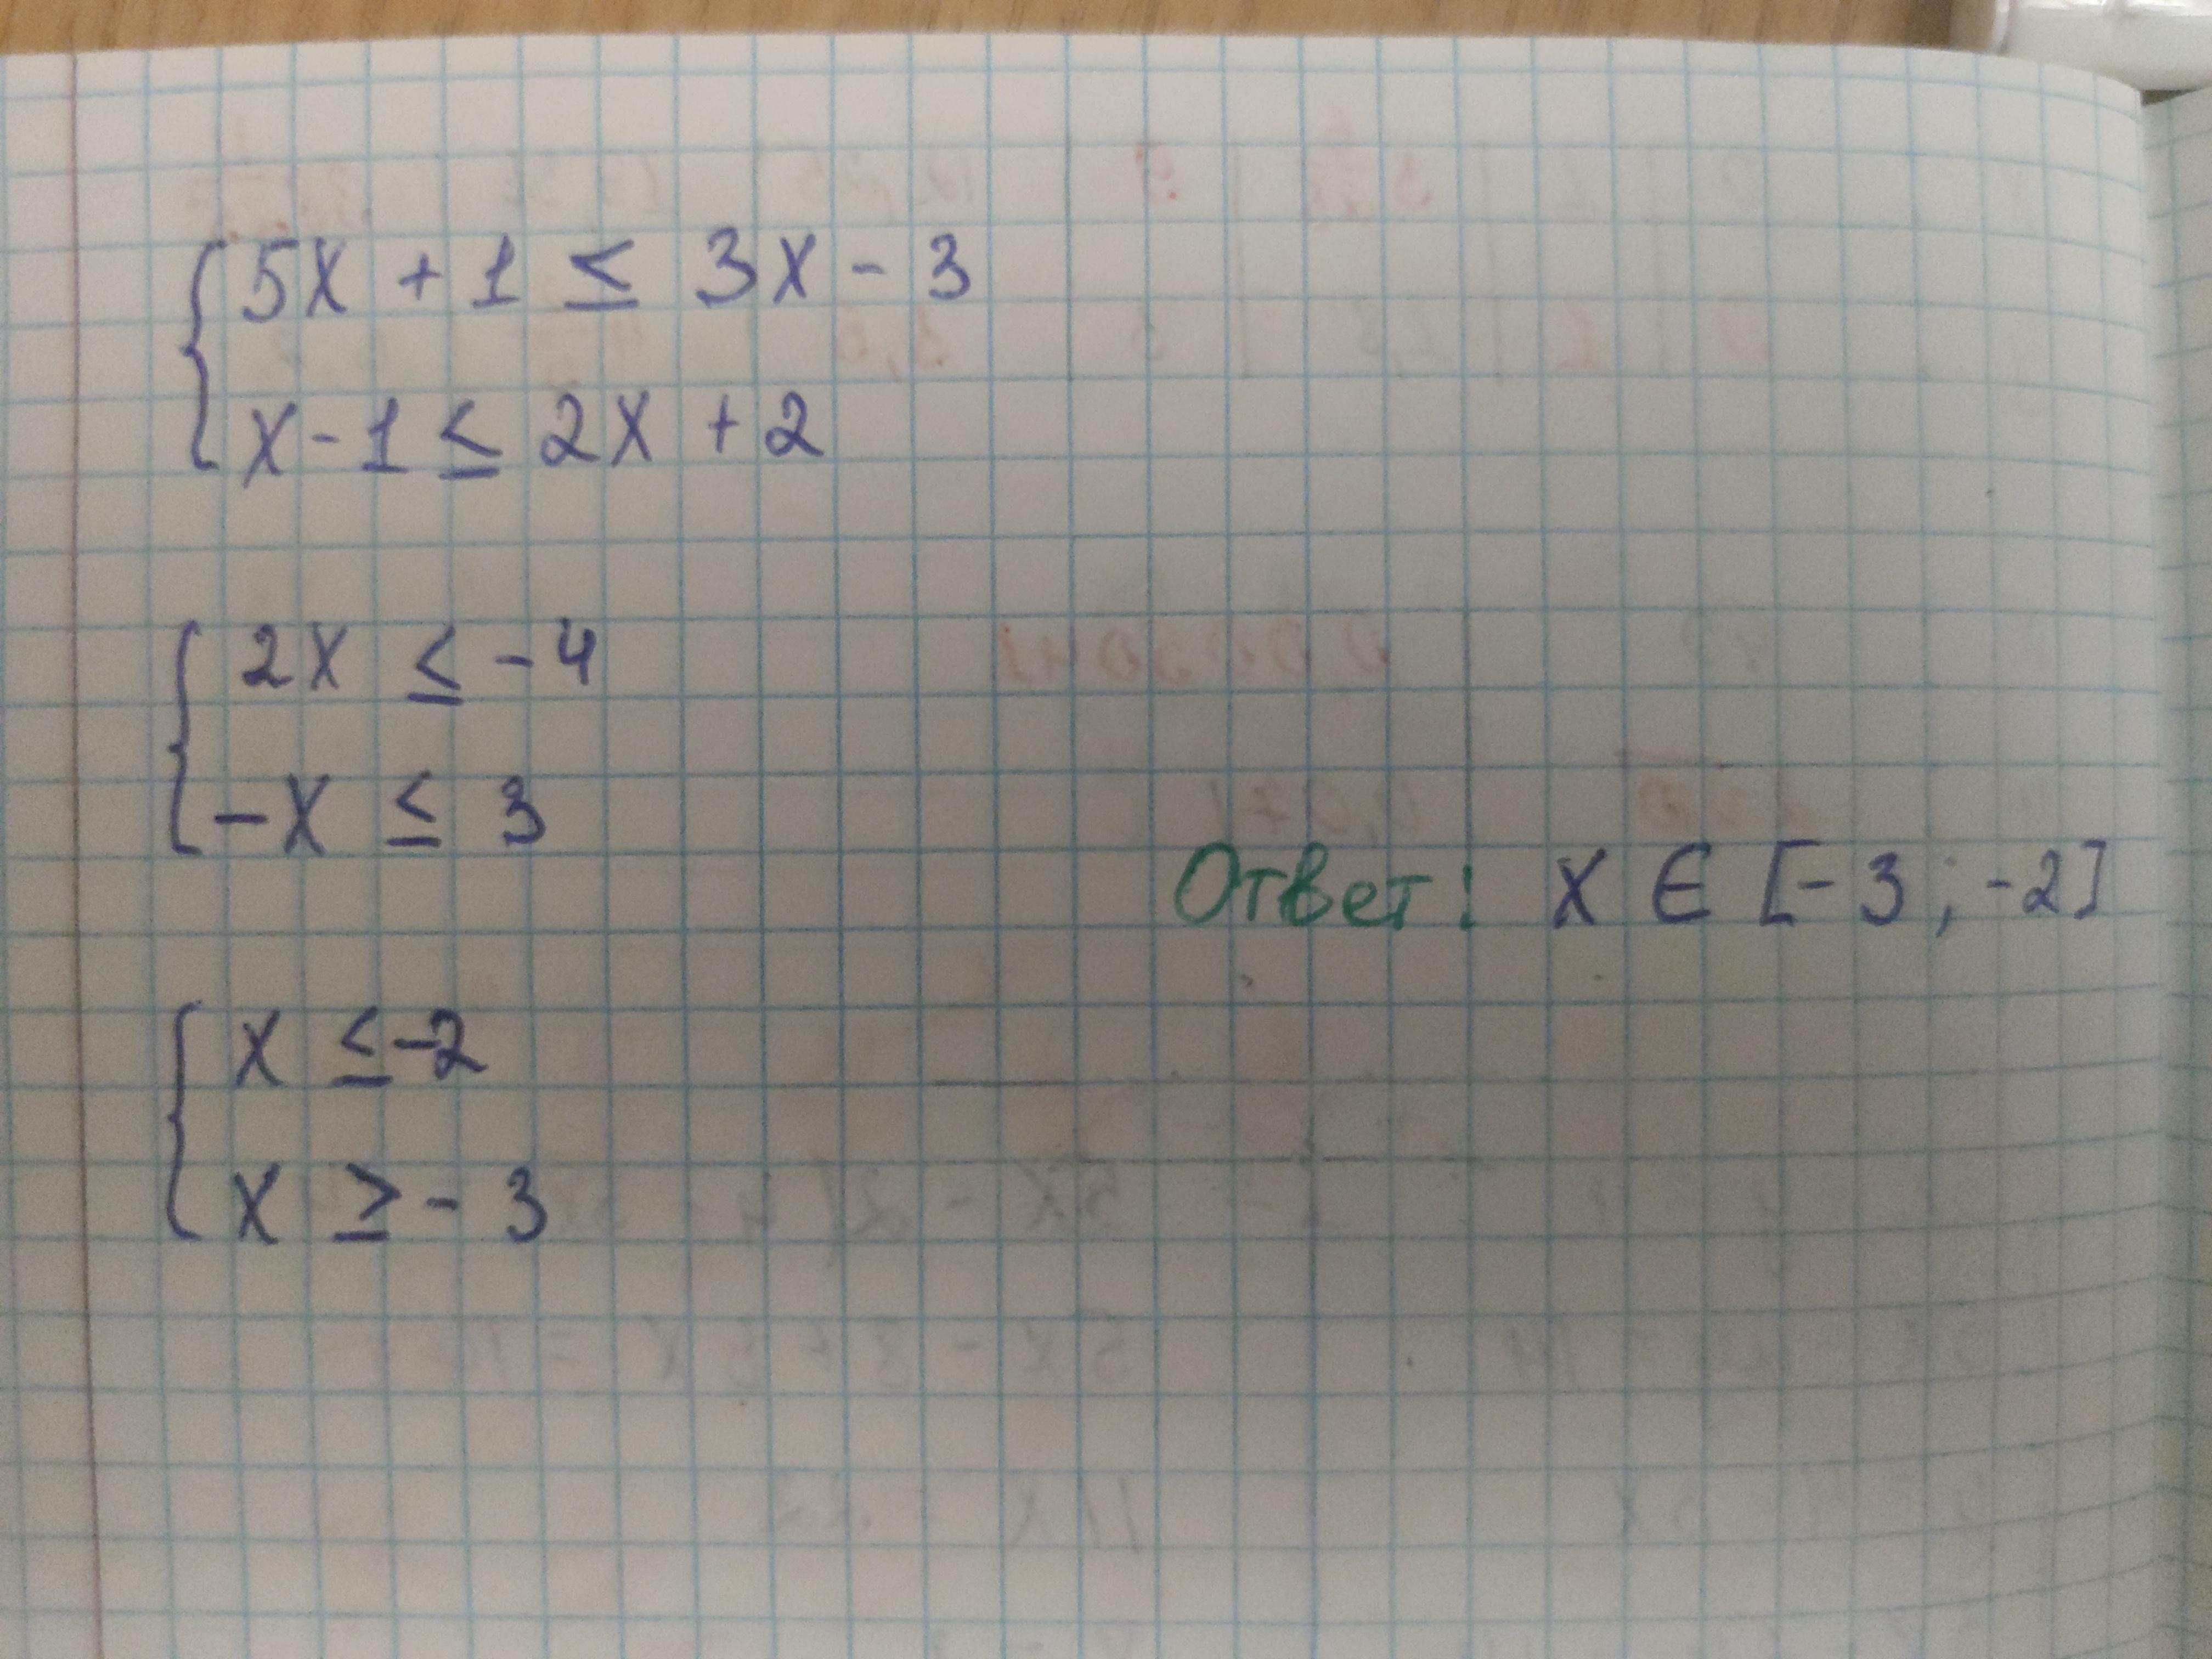 5x + 1 ≤ 3x - 3
x - 1 ≤ 2x + 2
2x ≤ -4
-x ≤ 3
Ответ: x ∈ [-3; -2]
x ≤ -2
x ≥ -3